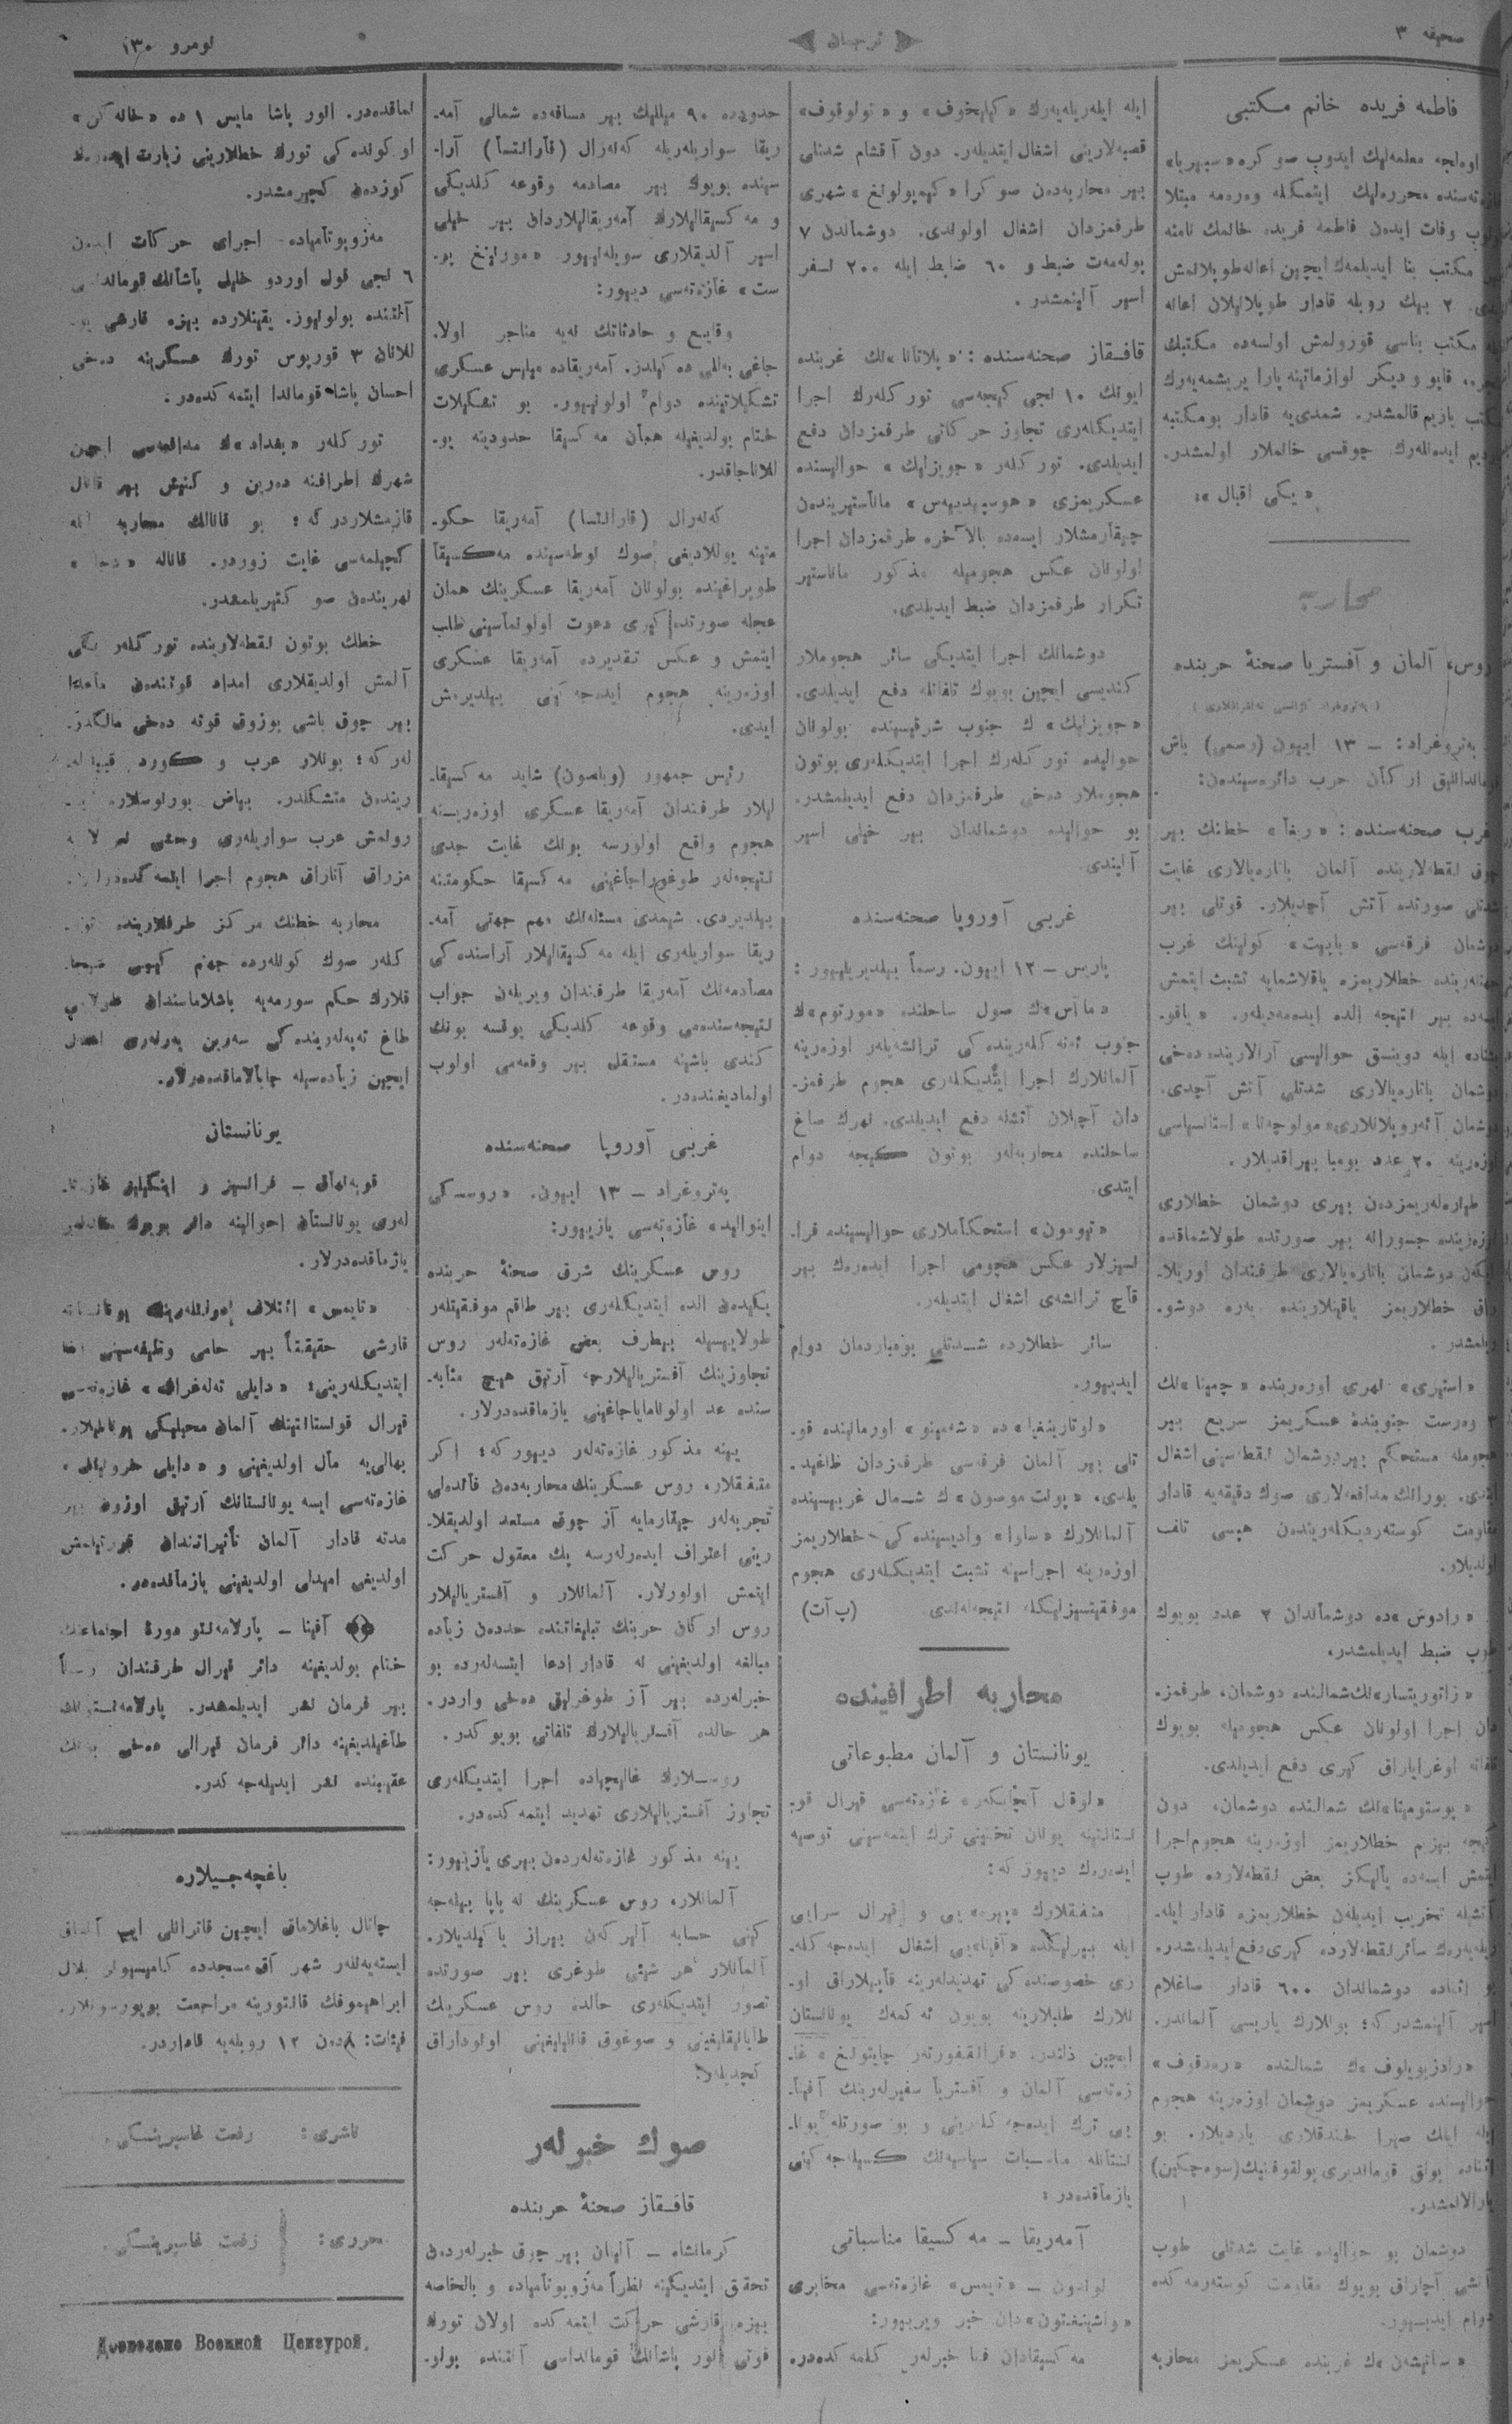 صحیفه ٣
ترجمان
نومرو ١٣٠
فاطمه فریده خانم مکتبی
اوەلجه معلمه‌لیك ایدوب صوکره «سیبریا»
سنده محرره‌لیك ایتمکله وەرەمه مبتلا
وفات ایدەن فاطمه فریده خانمك نامنه
مکتب بنا ایدیلمەك ایچین اعانه طوپلانمش
٢ بیك روبله قادار طوپلانیلان اعانه
مکتب بناسی قورولمش اولسه‌ده مکتبك
قاپو و دیگر لوازماتینه پارا یریشمه‌یەرك
یاریم قالمشدر. شمدی‌یه قادار بو مکتبه
ایدەنلەرك چوقسی خانملار اولمشدر.
«یکی اقبال»
محاربه
روس، آلمان و آفستریا صحنهٔ حربنده
پەتروغراد: — ١٣ اییون (رسمی) باش
قوماندانلیق ارکان حرب دائرەسیندەن:
غرب صحنه‌سنده: «ریغا» خطنك بیر
چوق نقطه‌لارینده آلمان باتارەیالاری غایت
شدتلی صورتده آتش آچدیلار. قوتلی بیر
دوشمان فرقه‌سی «بابیت» کولینك غرب
خطلاریمزه یاقلاشمایه تشبث ایتمش
ایسه‌ده بیر نتیجه الده ایدەمەدیلەر.
ایله دوینسق حوالیسی آرالارینده دخی
دوشمان باتارەیالاری شدتلی آتش آچدی.
دوشمان آئەروپلانلاری «مولوچەنا» استانسیاسی
اوزەرینه ٢٠ عدد بومبا بیراقدیلار.
طیارەلەریمزدەن بیری دوشمان خطلاری
اوزەرینده جسورانه بیر صورتده طولاشماقده
ایکەن دوشمان باتارەیالاری طرفندان اوریلا-
راق خطلاریمز یاقینلارینده یەره دوشو-
ریلمشدر.
«استیری» نهری اوزەرینده «چمینا»نك
٣ وەرست جنوبندە عسکریمز سریع بیر
هجومله مستحکم بیر دوشمان نقطه‌سینی اشغال
ایتدی. بورانك مدافعه‌لاری صوك دقیقه‌یه قادار
مقاومت کوستەردیکلەریندەن هپسی تلف
اولدیلار.
«رادوس»ده دوشماندان ٢ عدد بویوك
طوپ ضبط ایدیلمشدر.
«زاتوریتسار»نك شمالنده دوشمان، طرفمز-
دان اجرا اولونان عکس هجومیله بویوك
تلفاته اوغرایاراق کیری دفع ایدیلدی.
«پوستومیتا»نك شمالنده دوشمان، دون
کیجه بیزیم خطلاریمز اوزەرینه هجوم اجرا
ایتمش ایسه‌ده یالیکز بعض نقطه‌لارده طوپ
آتشیله تخریب ایدیلەن خطلاریمزه قادار ایله-
ریلەیەرك سائر نقطه‌لارده کیری دفع ایدیلمشدر.
بو اثناده دوشماندان ٦٠٠ قادار صاغلام
اسیر آلینمشدر که؛ بونلارك یاریسی آلماندر.
«رادزیویلوف»ك شمالنده «رەدقوف»
حوالیسنده عسکریمز دوشمان اوزەرینه هجوم
ایله ایلك صیرا خندقلاری یاردیلار. بو
اثناده پولق قوماندیری پولقوفنیك (سوەچکین)
یارالانمشدر.
دوشمان بو حوالیده غایت شدتلی طوپ
آتشی آچاراق بویوك مقاومت کوستەرمه‌کده
دوام ایدییور.
غربنده عسکریمز محاربه
ایله ایلەریلەیەرك «کیلیخوف» و «تولوقوف»
قصبه‌لارینی اشغال ایتدیلەر. دون آقشام شدتلی
بیر محاربه‌دەن صوکرا «کیمپولونغ» شهری
طرفمزدان اشغال اولوندی. دوشماندن ٧
پولەمەت ضبط و ٦٠ ضابط ایله ٢٠٠ نفر
اسیر آلینمشدر.
قافقاز صحنه‌سنده: «پلاتانا»نك غربنده
ایونك ١٠ نجی کیجه‌سی تورکلەرك اجرا
ایتدیکلەری تجاوز حرکاتی طرفمزدان دفع
ایدیلدی. تورکلەر «جویزلیك» حوالیسنده
عسکریمزی ماناستیریندەن
چیقارمشلار ایسه‌ده بالآخره طرفمزدان اجرا
اولونان عکس هجومیله مذکور ماناستیر
تکرار طرفمزدان ضبط ایدیلدی.
دوشمانك اجرا ایتدیکی سائر هجوملار
کندیسی ایچین بویوك تلفاتله دفع ایدیلدی.
«جویزلیك»ك جنوب شرقیسینده بولونان
حوالیده تورکلەرك اجرا ایتدیکلەری بوتون
هجوملار دەخی طرفمزدان دفع ایدیلمشدر.
بو حوالیده دوشماندان بیر خیلی اسیر
آلیندی.
غربی آوروپا صحنه‌سنده
پاریس — ١٢ ایپون. رسماً بیلدیریلییور:
«مآس»ك صول ساحلنده «مورتوم»ك
جنوب ئەتەکلەرینده‌کی ترانشەیلەر اوزەرینه
آلمانلارك اجرا ایتدیکلەری هجوم طرفمز-
دان آچیلان آتشله دفع ایدیلدی. نهرك صاغ
ساحلنده محاربه‌لەر بوتون کیجه دوام
ایتدی.
«تیومون» استحکاملاری حوالیسینده فرا-
نسیزلار عکس هجومی اجرا ایدەرەك بیر
قاچ ترانشەی اشغال ایتدیلەر.
سائر خطلارده شدتلی بومباردمان دوام
ایدییور.
«لوتارینغیا»ده «شەمینو» اورمانینده قو-
تلی بیر آلمان فرقه‌سی طرفمزدان طاغید-
یلدی. «پونت موصون»ك شمال غربیسینده
آلمانلارك «ساوا» وادیسینده‌کی خطلاریمز
اوزەرینه اجراسینه تشبث ایتدیکلەری هجوم
موفقیتسیزلیکله نتیجه‌لەندی. (پ آت)
محاربه اطرافینده
یونانستان و آلمان مطبوعاتی
«لوقل آنچایگەر» غازەته‌سی قیرال قو-
نستانتینه یونان تختینی ترك ایتمه‌سینی توصیه
ایدەرەك دییور که:
متفقلارك «پیرە»یی و قیرال سرایی
ایله بیرلیکده «آفینا»یی اشغال ایدەجه‌کله-
ری خصوصنده‌کی تهدیدلەرینه قاپیلاراق او-
نلارك طلبلارینه بویون ئەکمەك یونانستان
ایچین ذلتدر. «فرانقفورتەر چایتونغ» غا-
زەته‌سی آلمان و آفستریا سفیرلەرینك آفینا-
یی ترك ایدەجه‌کلەرینی و بو صورتله یونا-
نستانله مناسبات سیاسیه‌نك کسیله‌جه‌کنی
یازماقدەدر.
آمەریقا — مەکسیقا مناسباتی
لوندون — «تایمس» غازەته‌سی مخابری
«واشینغتون»دان خبر ویرییور:
مەکسیقادان فنا خبرلەر کلمه‌کدەدر.
حدوددە ٩٠ میللیك بیر مسافه‌ده شمالی آمه-
ریقا سواریلەریله گەنەرال (قارانتسا) آرا-
سینده بویوك بیر مصادمه وقوعه کلدیکی
و مەکسیقالیلارك آمەریقالیلاردان بیر خیلی
اسیر آلدیقلاری سویلەنییور. «مورنینغ پو-
ست» غازەته‌سی دییور:
وقایع و حادثاتك نەیه منجر اولا-
جاغی بەللی دەکیلدر. آمەریقاده میلیس عسکری
تشکیلاتینده دوام اولونییور. بو تشکیلات
ختام بولدیغیله همان مەکسیقا حدودینه یو-
للاناجاقدر.
گەنەرال (قارانتسا) آمەریقا حکو-
متینه یوللادیغی صوك نوطه‌سینده مەکسیقا
طوپراغینده بولونان آمەریقا عسکرینك همان
عجله صورتده کیری دعوت اولونماسینی طلب
ایتمش و عکس تقدیرده آمەریقا عسکری
اوزەرینه هجوم ایدەجه‌کینی بیلدیرمش
ایدی.
رئیس جمهور (ویلسون) شاید مەکسیقا-
لیلار طرفندان آمەریقا عسکری اوزەرینه
هجوم واقع اولورسه بونك غایت جدی
نتیجه‌لەر طوغوراجاغینی مەکسیقا حکومتینه
بیلدیردی. شیمدی مسئله‌نك مهم جهتی آمه-
ریقا سواریلەری ایله مەکسیقالیلار آراسنده‌کی
مصادمه‌نك آمەریقا طرفندان ویریلەن جواب
نتیجه‌سنده‌می وقوعه کلدیکی یوقسه بونك
کندی باشینه مستقل بیر وقعه‌می اولوب
اولمادیغندەدر.
غربی آوروپا صحنه‌سنده
پەتروغراد — ١٣ ایپون. «روسسکی
اینوالید» غازەته‌سی یازییور:
روس عسکرینك شرق صحنهٔ حربنده
یکیدەن الده ایتدیکلەری بیر طاقم موفقیتلەر
طولایسیله بیطرف بعض غازەتەلەر روس
تجاوزینك آفستریالیلارجه آرتیق هیچ مثابه-
سنده عد اولونامایاجاغینی یازماقدەدرلار.
یینه مذکور غازەتەلەر دییور که؛ اکر
متفقلار، روس عسکرینك محاربه‌دەن فائدەلی
تجربه‌لەر چیقارمایه آز چوق مستعد اولدیقلا-
رینی اعتراف ایدەرلەرسه پك معقول حرکت
ایتمش اولورلار. آلمانلار و آفستریالیلار
روس ارکان حربنك تبلیغاتنده حددەن زیاده
مبالغه اولدیغینی نه قادار ادعا ایتسەلەرده بو
خبرلەرده بیر آز طوغریلیق دەخی واردر.
هر حالده آفستریالیلارك تلفاتی بویوکدر.
روسلارك غالیچیاده اجرا ایتدیکلەری
تجاوز آفستریالیلاری تهدید ایتمه‌کدەدر.
یینه مذکور غازەتەلەردەن بیری یازییور:
آلمانلار، روس عسکرینك نه یاپا بیله‌جه-
کینی حسابه آلیرکەن بیراز یاکیلدیلار.
آلمانلار هر شیئی طوغری بیر صورتده
تصور ایتدیکلەری حالده روس عسکرینك
طایانیقلیغینی و صوغوق قانلیلیغینی اونوداراق
کچدیلەر.
صوك خبرلەر
قافقاز صحنهٔ حربنده
کرمانشاه — آلینان بیر چوق خبرلەردەن
تحقق ایتدیکینه نظراً مەزوپوتامیاده و بالخاصه
بیزه قارشی حرکت ایتمه‌کده اولان تورك
قوتی انور پاشانك قومانداسی آلتنده بولو-
نماقدەدر. انور پاشا مایس ١ ده «خانه‌کین»
اوکونده‌کی تورك خطلارینی زیارت ایدەرەك
کوزدەن کچیرمشدر.
مەزوپوتامیاده اجرای حرکات ایدەن
٦ نجی قول اوردو خلیل پاشانك قومانداسی
آلتنده بولونیوز. یقینلارده بیزه قارشی یو-
للانان ٣ قورپوس تورك عسکرینه دەخی
احسان پاشا قوماندا ایتمه‌کدەدر.
تورکلەر «بغداد»ك مدافعه‌سی ایچین
شهرك اطرافنه دەرین و کنیش بیر قانال
قازمشلاردر که؛ بو قانالك محاربه ایله
کچیلمه‌سی غایت زوردر. قاناله «دجله»
نهریندەن صو کتیریلمشدر.
خطك بوتون نقطه‌لارینده تورکلەر یکی
آلمش اولدیقلاری امداد قوتندەن ماعدا
بیر چوق باشی بوزوق قوته دەخی مالکدر-
لەر که؛ بونلار عرب و کورد قبیله‌له-
ریندەن متشکلدر. بیاض بورنوسلاره بو-
رونمش عرب سواریلەری وحشی نعرەلارله
مزراق آتاراق هجوم اجرا ایتمه‌کدەدرلەر.
محاربه خطنك مرکز طرفلارینده تور-
کلەر صوك کونلەرده جهنم کیبی صیجا-
قلارك حکم سورمه‌یه باشلاماسندان طولایی
طاغ تەپەلەرینده‌کی سەرین یەرلەری اشغال
ایچین زیادەسیله چابالاماقدەدرلار.
یونانستان
قوپەنهاق — فرانسیز و اینگیلیز غازەتا-
لەری یونانستان احوالینه دائر بویوك مقالەلەر
یازماقدەدرلار.
«تایمس» ائتلاف دولتلەرینك یونانستانه
قارشی حقیقتاً بیر حامی وظیفه‌سینی ایفا
ایتدیکلەرینی؛ «دایلی تەلەغراف» غازەته‌سی
قیرال قونستانتینك آلمان محبلیکی یونانلیلار-
بهالی‌یه مال اولدیغینی و «دایلی خرونیقل»
غازەته‌سی ایسه یونانستانك آرتیق اوزون بیر
مدته قادار آلمان تأثیراتندان قورتیلمش
اولدیغی امیدلی اولدیغینی یازماقدەدر.
آفینا — پارلامەنتو دورهٔ اجتماعینك
ختام بولدیغینه دائر قیرال طرفندان رسماً
بیر فرمان نشر ایدیلمشدر. پارلامەنتونك
طاغیلدیغینه دائر فرمان قیرالی دەخی بونك
عقبینده نشر ایدیله‌جه‌کدر.
باغچه‌جیلاره
چاتال باغلاماق ایچین قانراتلی ایپ آلماق
ایستەیەنلەر شهر آق‌مسجدده کامیسیونر بلال
ابراهیموفك قانتورینه مراجعت بویورسونلار.
فیئات: ٨دەن ١٢ روبله‌یه قاداردر.
ناشری: رفعت غاسپرینسکی.
محرری: رفعت غاسپرینسکی.
Дозволено Военной Цензурой.